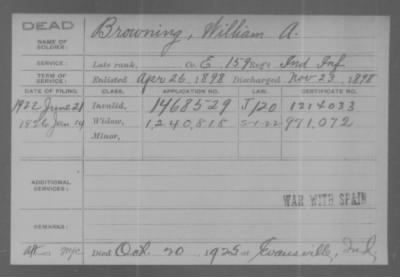 DEAD
NAME OF SOLDIER: Browning, William A.
SERVICE: Late rank, Co. E. 159 Reg't Ind Inf
TERM OF SERVICE: Enlisted Apr 26, 1898 Discharged Nov 23, 1898
DATE OF FILING. CLASS. APPLICATION NO. LAW. CERTIFICATE NO.
1922 June 21 Invalid, 1468529 J120 1214033
1926 Jan 14 Widow, 1,240,818 5-1-22 971,072
Minor,
ADDITIONAL SERVICES:
WAR WITH SPAIN
REMARKS:
Died Oct. 20, 1925 at Evansville, Ind.